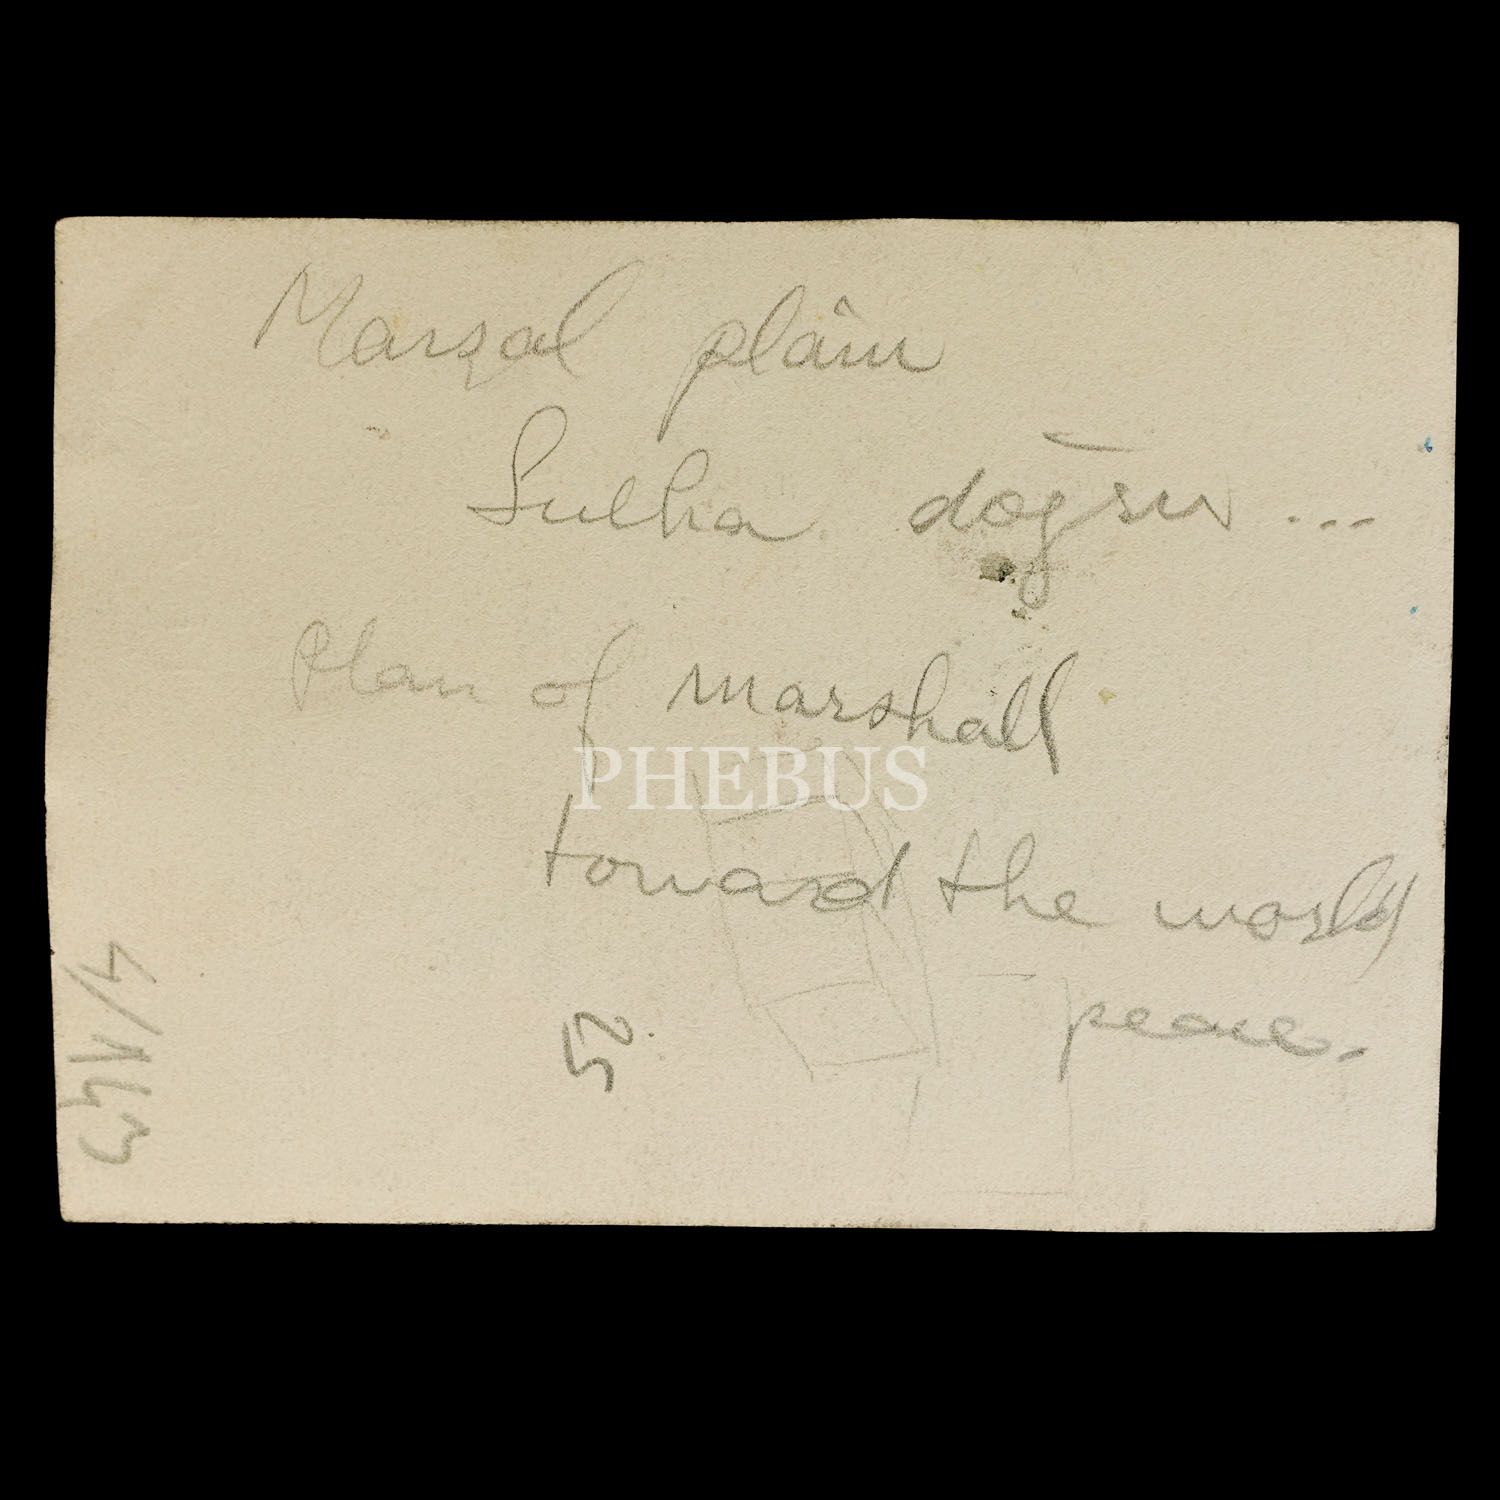 Marşal plânı
Sulha doğru ...
Plan of marshall
PHEBUS
toward the world
peace.
52